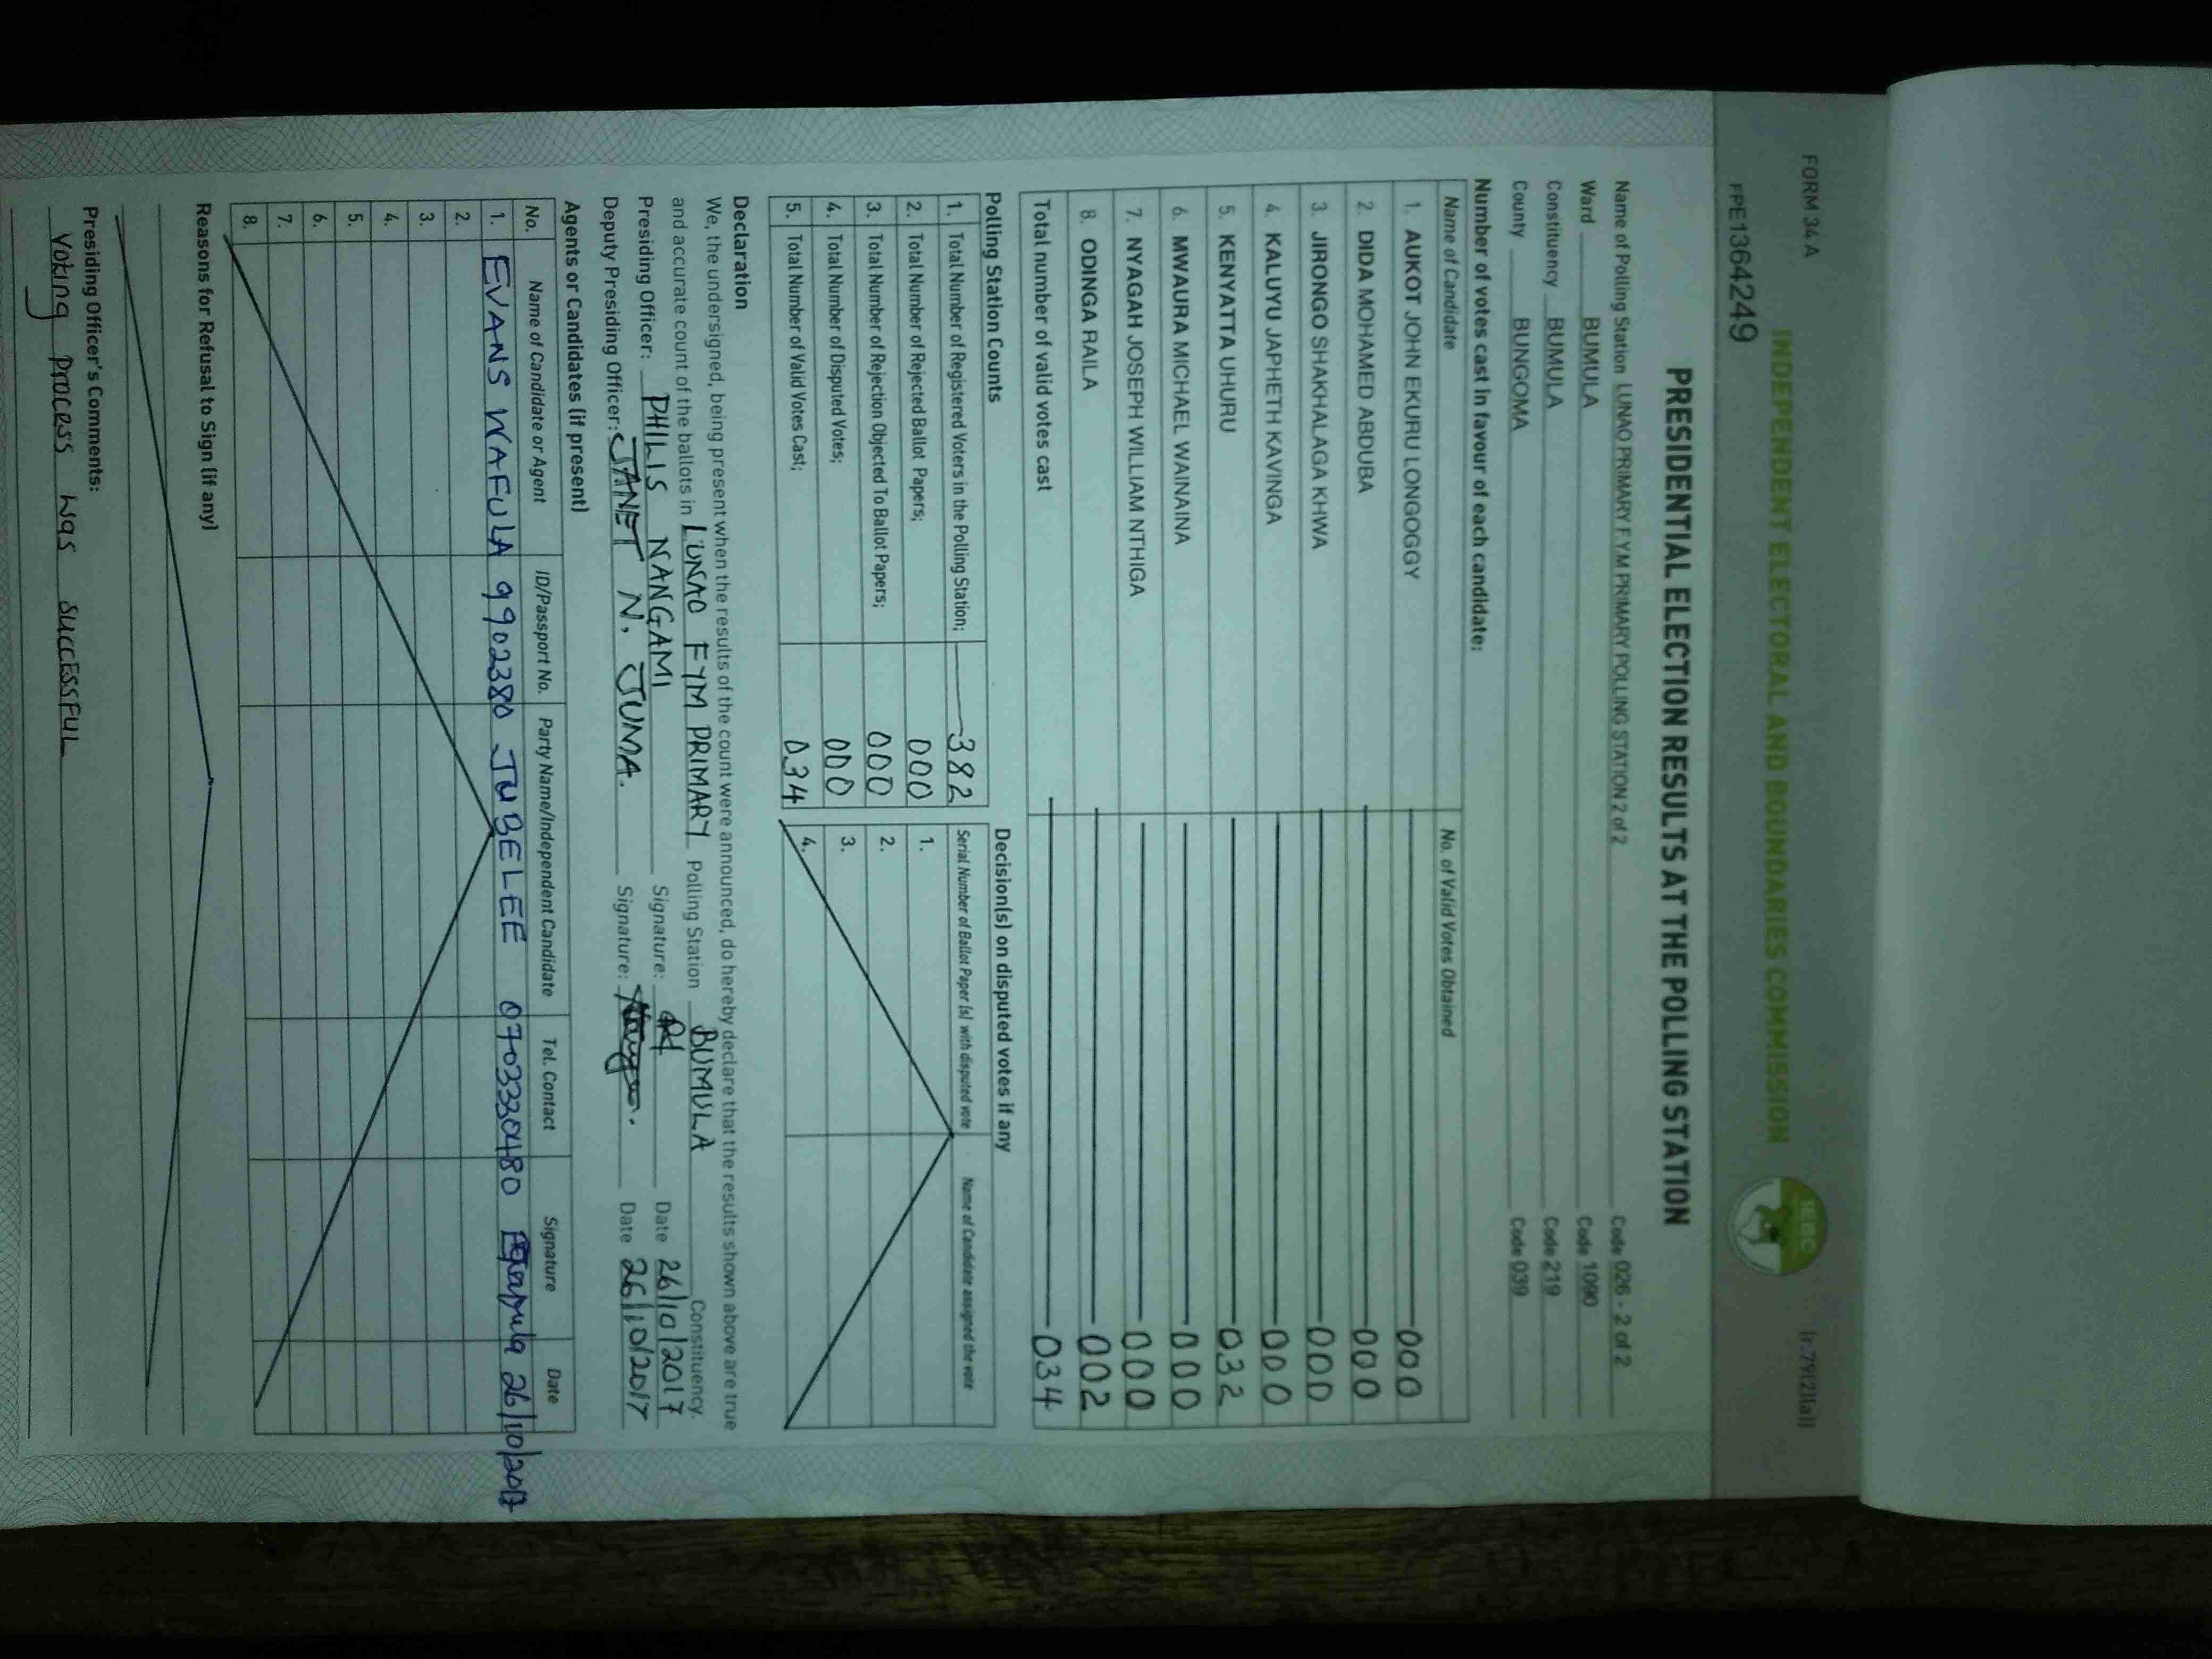 FORM 34 A
INDEPENDENT ELECTORAL AND BOUNDARIES COMMISSION
IEBC
(r.79(2)(a))
FPE1364249
PRESIDENTIAL ELECTION RESULTS AT THE POLLING STATION
Name of Polling Station LUNAO PRIMARY F.Y.M PRIMARY POLLING STATION 2 of 2 Code 026 - 2 of 2
Ward BUMULA Code 1090
Constituency BUMULA Code 219
County BUNGOMA Code 039
Number of votes cast in favour of each candidate:
Name of Candidate No. of Valid Votes Obtained
1. AUKOT JOHN EKURU LONGOGGY 000
2. DIDA MOHAMED ABDUBA 000
3. JIRONGO SHAKHALAGA KHWA 000
4. KALUYU JAPHETH KAVINGA 000
5. KENYATTA UHURU 032
6. MWAURA MICHAEL WAINAINA 000
7. NYAGAH JOSEPH WILLIAM NTHIGA 000
8. ODINGA RAILA 002
Total number of valid votes cast 034
Polling Station Counts
1. Total Number of Registered Voters in the Polling Station; 382
2. Total Number of Rejected Ballot Papers; 000
3. Total Number of Rejection Objected To Ballot Papers; 000
4. Total Number of Disputed Votes; 000
5. Total Number of Valid Votes Cast; 034
Decision(s) on disputed votes if any
Serial Number of Ballot Paper (s) with disputed vote Name of Candidate assigned the vote
1.
2.
3.
4.
Declaration
We, the undersigned, being present when the results of the count were announced, do hereby declare that the results shown above are true
and accurate count of the ballots in LUNAO FYM PRIMARY Polling Station BUMULA Constituency.
Presiding Officer: PHILIS NANGAMI Signature: Date 26/10/2017
Deputy Presiding Officer: JANET N. JUMA. Signature: Date 26/10/2017
Agents or Candidates (if present)
No. Name of Candidate or Agent ID/Passport No. Party Name/Independent Candidate Tel. Contact Signature Date
1. EVANS WAFULA 9902380 JUBELEE 0703330480 26/10/2017
2.
3.
4.
5.
6.
7.
8.
Reasons for Refusal to Sign (if any)
Presiding Officer's Comments:
voting process was successful